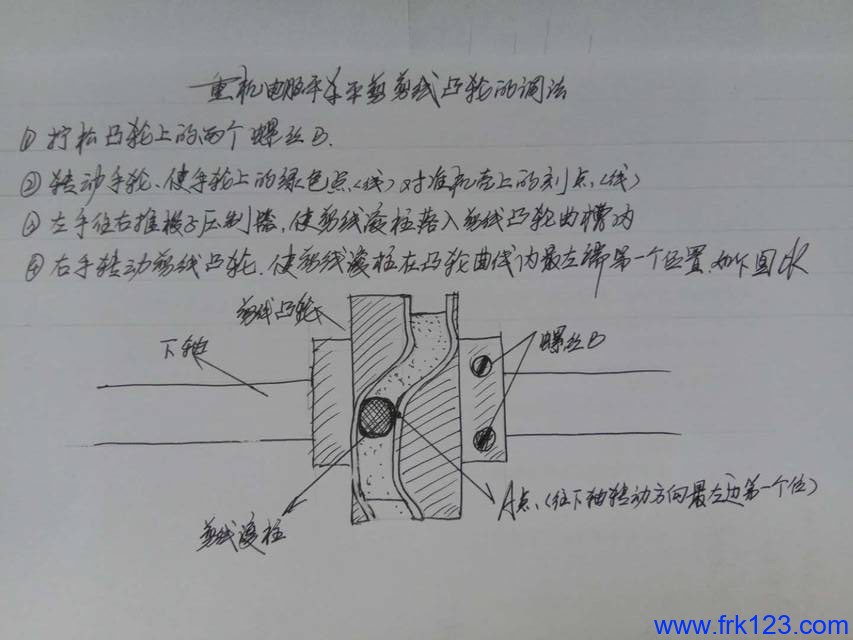 重机电脑平车平剪剪线凸轮的调法
① 拧松凸轮上的两个螺丝D.
② 转动手轮、使手轮上的绿色点、(线)对准机壳上的刻点、(线)
③ 左手往右推板子压制器,使剪线滚柱落入剪线凸轮曲槽内
④ 右手转动剪线凸轮.使剪线滚柱在凸轮曲线内最左端第一个位置.如下图OK
剪线凸轮
下轴
螺丝D
A点、(往下轴转动方向最左边第一个位)
剪线滚柱
www.frk123.com